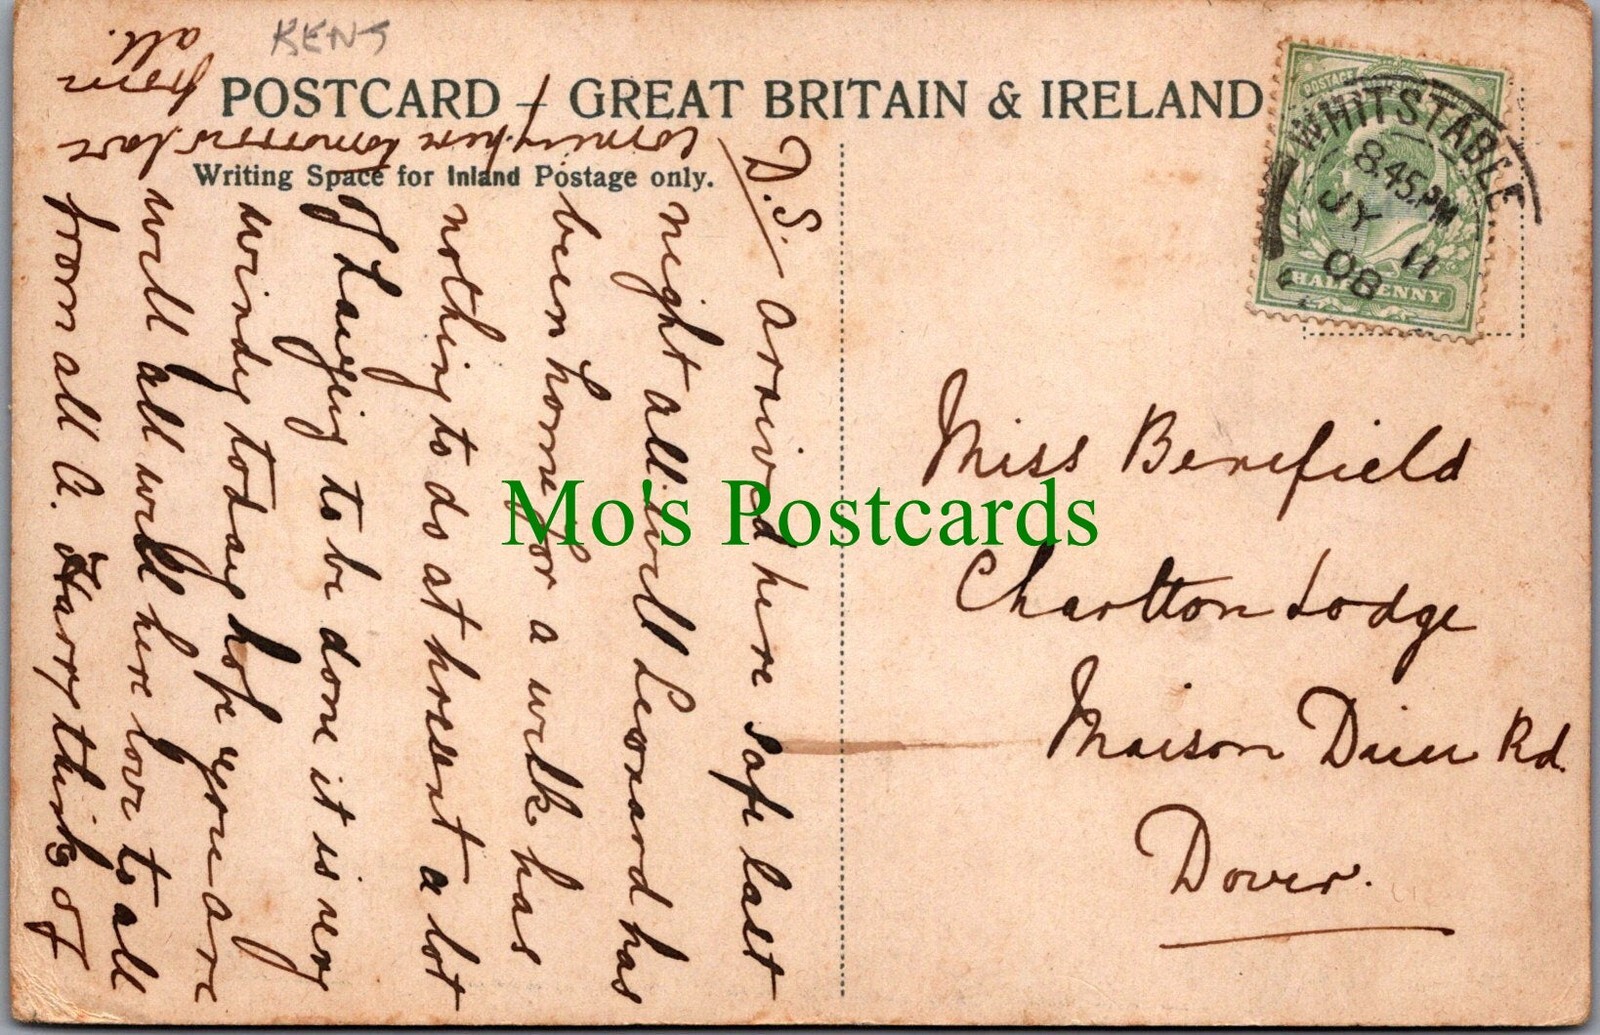 KENT
POSTCARD – GREAT BRITAIN & IRELAND
Writing Space for Inland Postage only.
D.S. arived here safe last
night all well Leonard has
been home for a wilk has
nothing to do at present a lot
of Langing to be done it is very
windy today hope you are
will all will here love to all
from all A. Harry thinks of
coming here tomorrow love
from
all.
POSTAGE
HALFPENNY
WHITSTABLE
8.45.PM
JY 11
08
Miss Benefield
Charlton Lodge
Maison Dieu Rd.
Dover.
Mo's Postcards